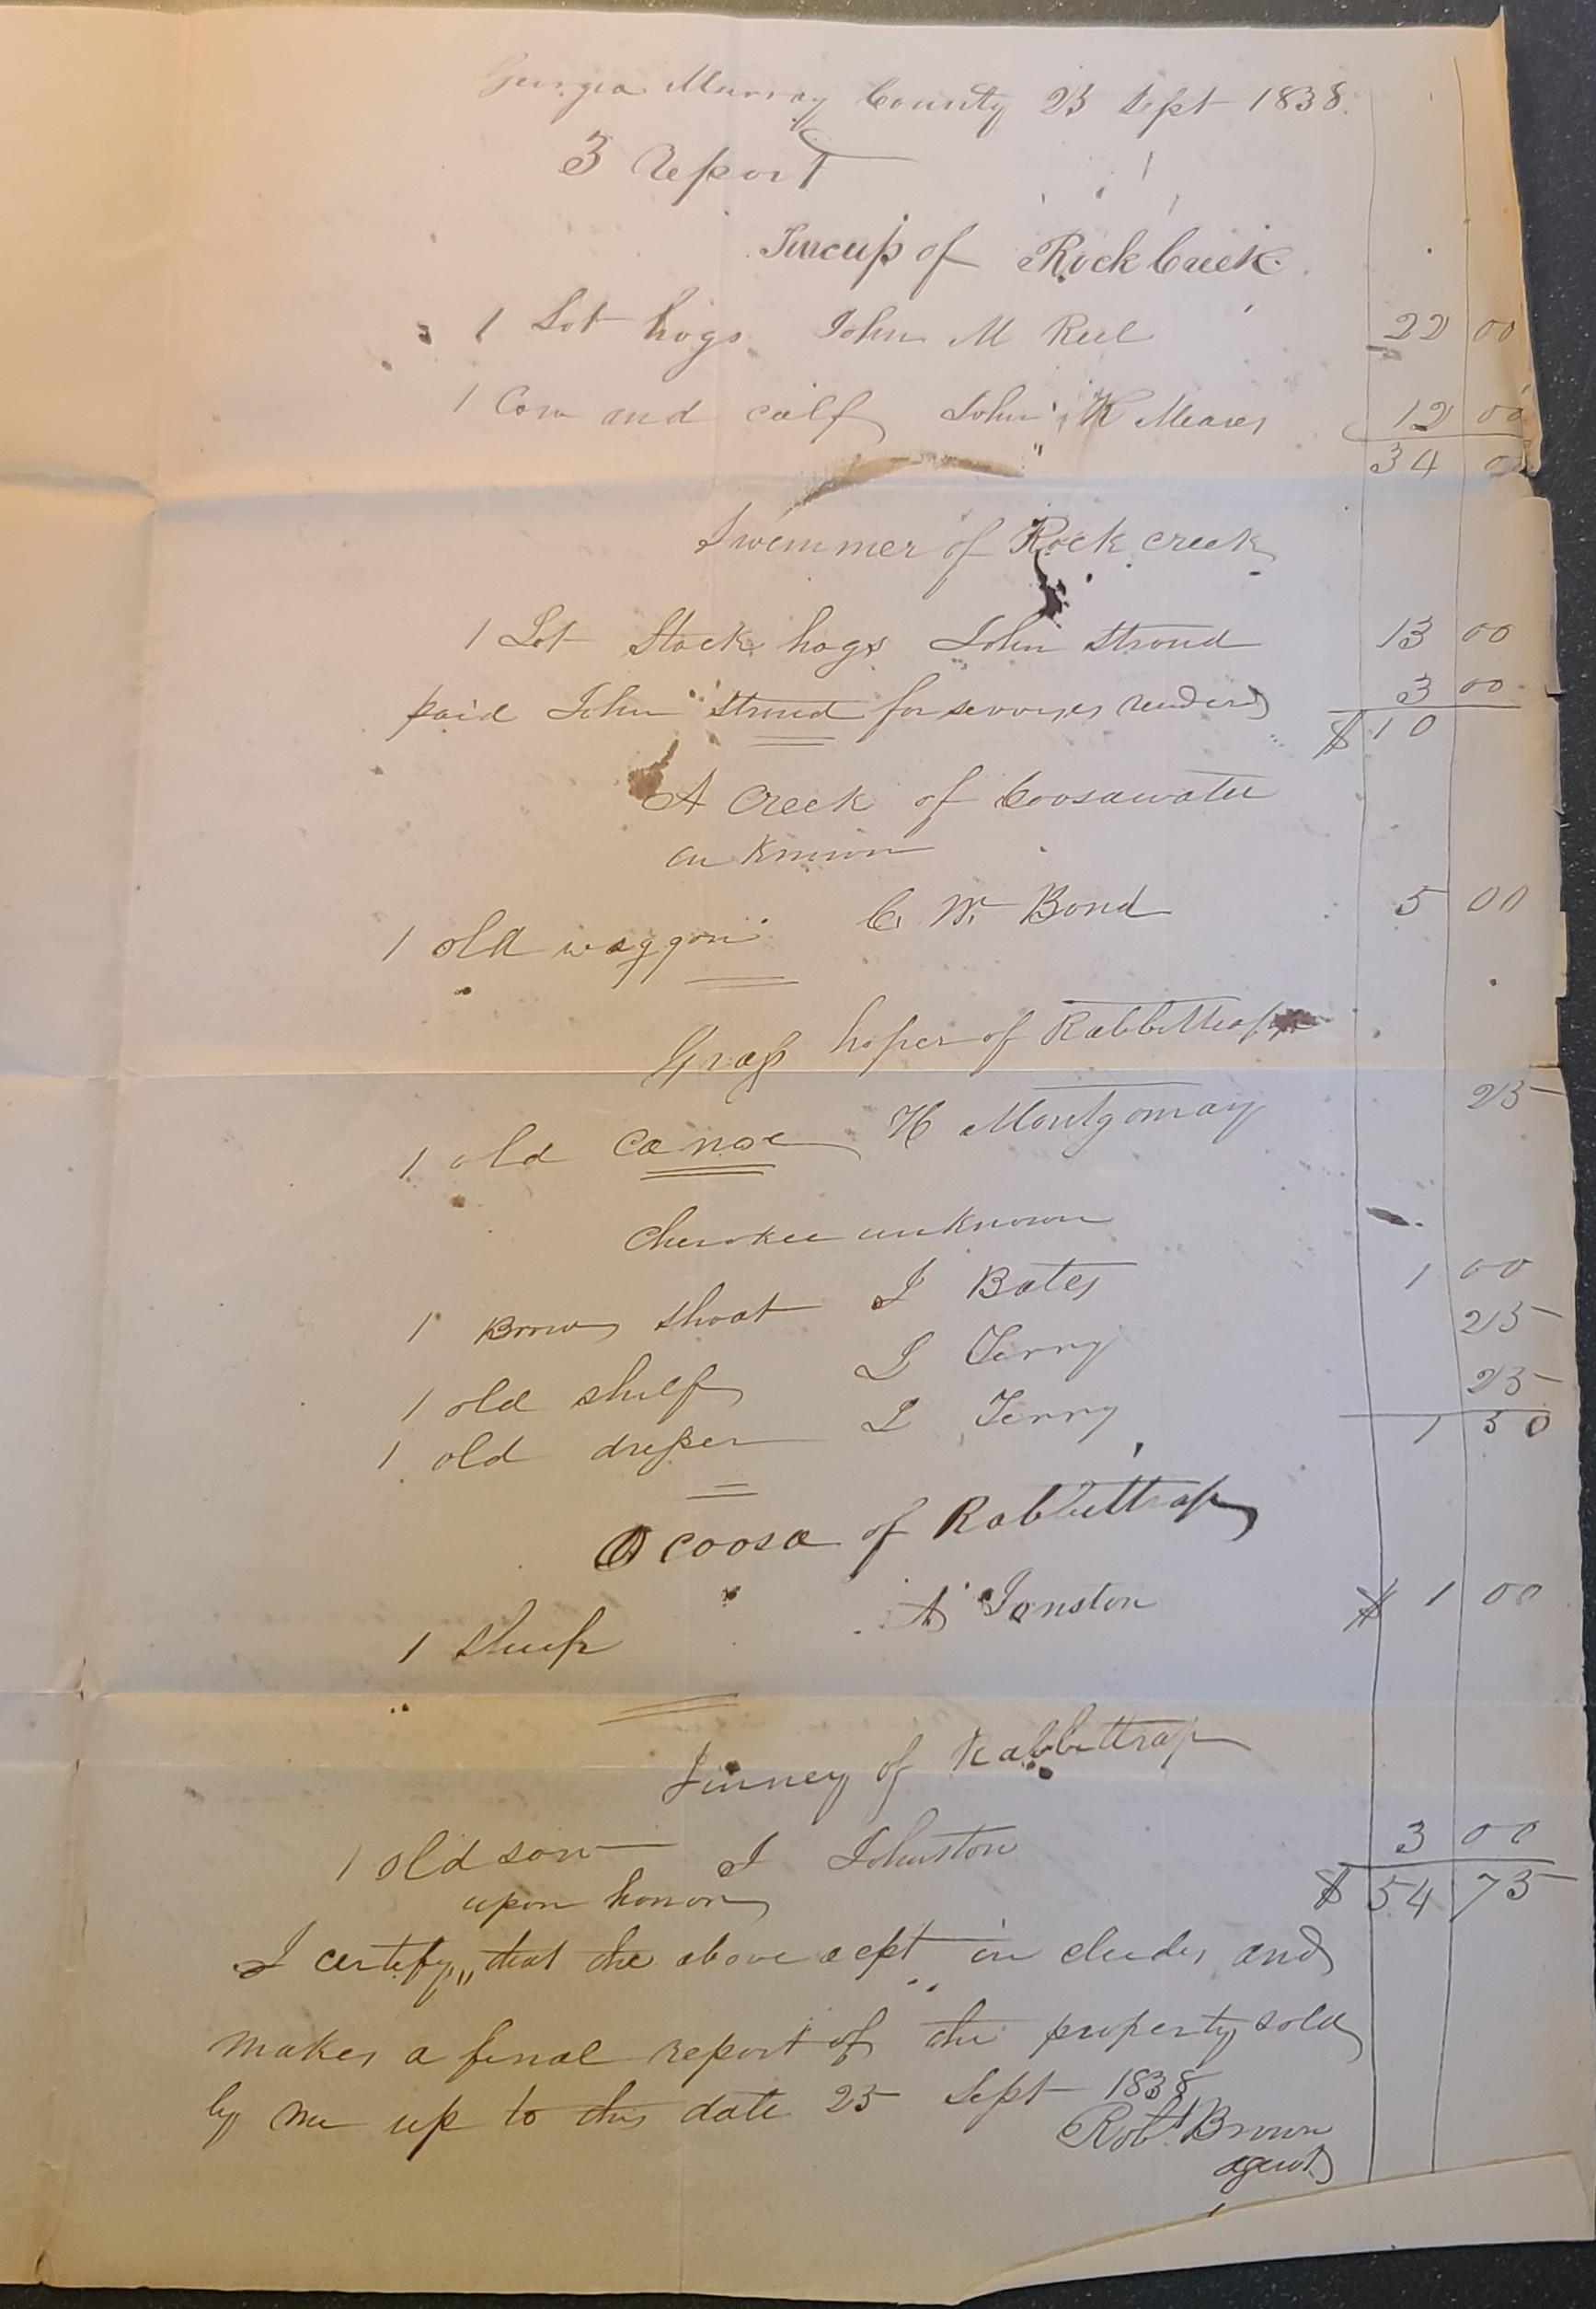 Georgia Murray County 25 Sept 1838.
3 report
Tincup of Rock Creek.
1 Lot hogs John M Reel 22 00
1 Cow and calf John K Meares 12 00
34 00
Swimmer of Rock creek
1 Lot Stock hogs John Stroud 13 00
paid John Stroud for servises renderd 3 00
$10
A Creek of Coosawatee
un known
1 old waggon C. W. Bond 5 00
Grass hoper of Rabbittrap
1 old Canoe H Montgomay 25
Cherokee unknown
1 Brown shoat J Bates 1 00
1 old shelf L Terry 25
1 old dresser L Terry 25
1 50
A coosa of Rabbittrap
1 Sheep A Jonston $ 1 00
Jinney of Rabbittrap
1 old sow J Johnston 3 00
upon honor $ 54 75
I certify " that the above acpt in cludes and
makes a final report of the property sold
by me up to this date 25 Sept 1838
Robt. Brown
agent